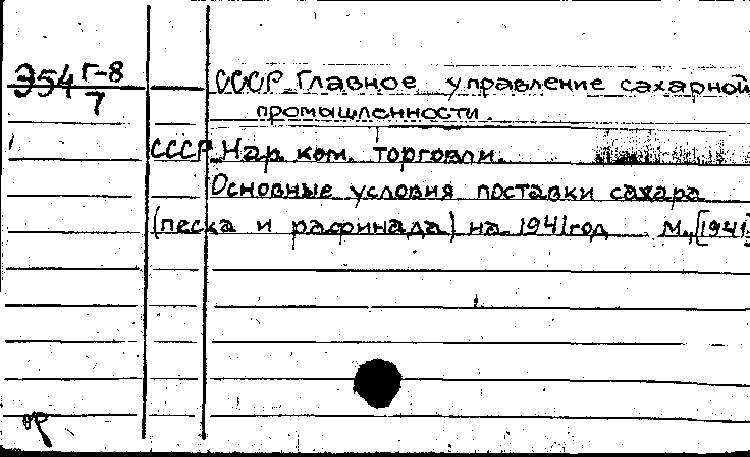 Э54 Г-8
7
СССР Главное управление сахарной
промышленности.
СССР Нар. ком. торговли.
Основные условия поставки сахара
(песка и рафинада) на 1941 год М., [1941]
ор